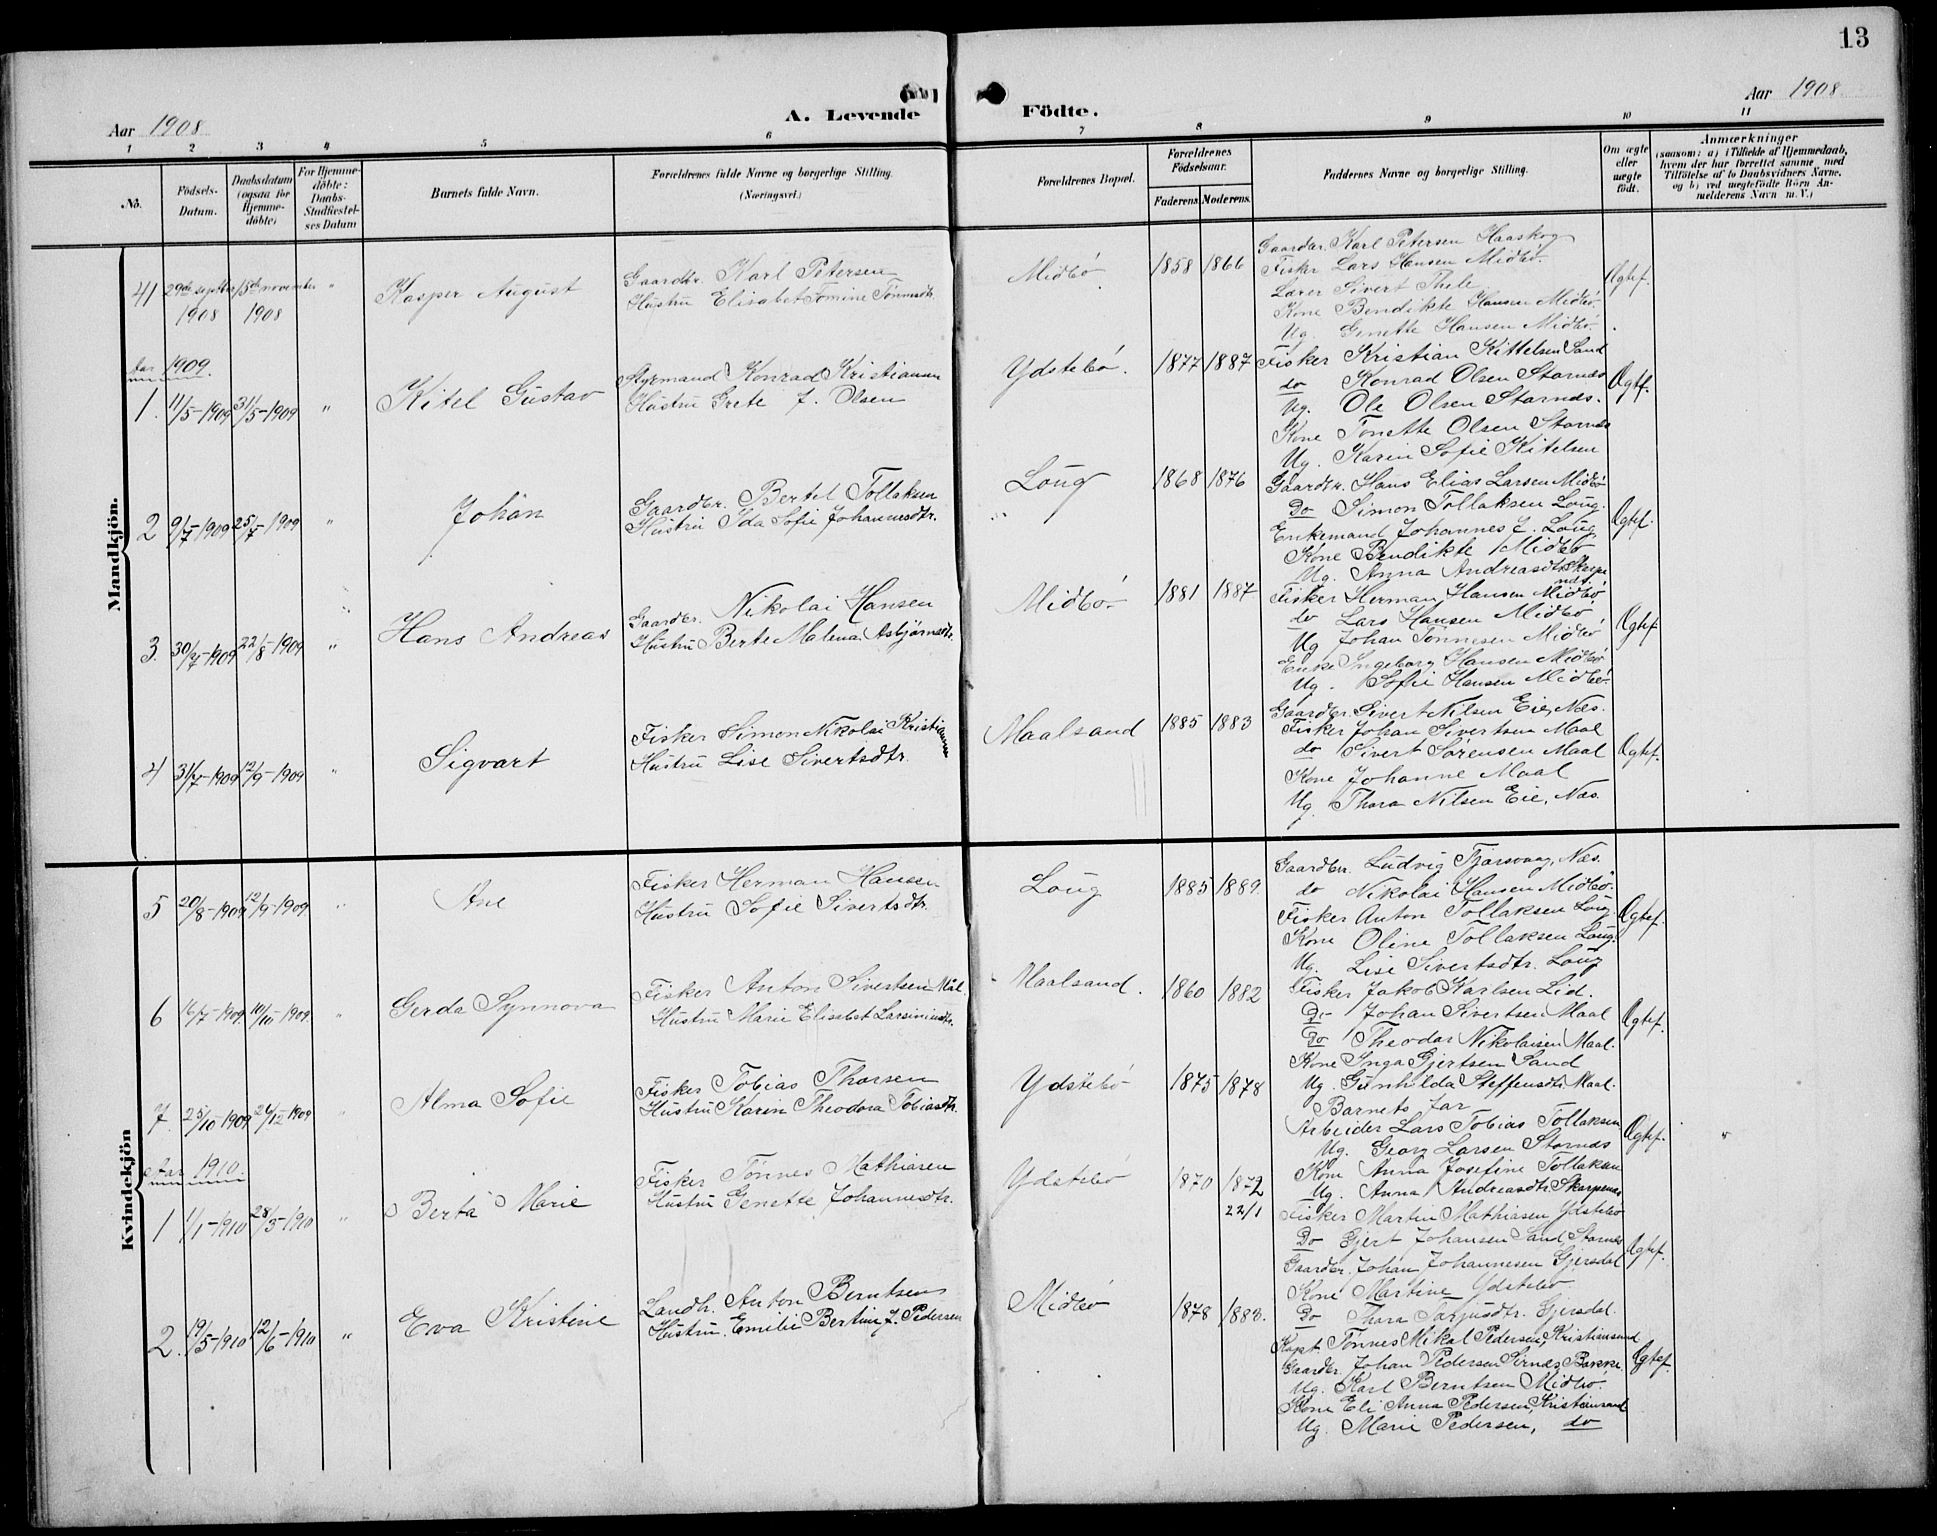 13
Aar 1908
A. Levende Födte.
Aar 1908
1 2 3 4 5 6 7 8 9 10 11
No.
Födsels-Datum.
Daabsdatum (ogsaa for Hjemmedöbte)
For Hjemmedöbte: Daabs-Stadfæstelses Datum
Barnets fulde Navn.
Forældrenes fulde Navne og borgerlige Stilling. (Næringsvei.)
Forældrenes Bopæl.
Forældrenes Födselsaar.
Faderens. Moderens.
Faddernes Navne og borgerlige Stilling.
Om ægte eller uægte födt.
Anmærkninger
(saasom: a) i Tilfælde af Hjemmedaab, hvem der har forrettet samme, med Tilföielse af to Daabsvidners Navne, og b) ved uægtefödte Börn Anmelderens Navn m. V.)
Mandkjön.
41 29de septbr 1908 15de november 1908 " Kasper August
Gaardbr. Karl Petersen
Hustru Elisabet Tomine Tønnesdtr.
Midbö 1858 1866
Gaardbr. Karl Petersen Haaskog
Fisker Lars Hansen Midbö.
Lærer Sivert Thele
Kone Bendikte Hansen Midbö.
Ug. Genette Hansen Midbö.
Ægtef.
Aar 1909.
1. 11/5-1909 31/5-1909 " Kitel Gustav
Styrmand Konrad Kristiansen
Hustru Grete J. Olsen
Ydstebö. 1877 1887
Fisker Kristian Kittelsen Sand
do Konrad Olsen Starnes
Ug. Ole Olsen Starnes.
Kone Tonette Olsen Starnes
Ug. Karin Sofie Kitelsen
Ægtef.
2 9/7-1909 25/7-1909 " Johan
Gaardbr. Bertel Tollaksen
Hustru Ida Sofie Johannesdtr.
Loug 1868 1876
Gaardbr. Hans Elias Larsen Midbö
Do Simon Tollaksen Loug.
Enkemand Johannes J. Loug
Kone Bendikte Midbö
Ug. Anna Andreasdtr. Skarpenes.
Ægtef.
3. 30/7-1909 22/8-1909 " Hans Andreas
Gaardbr. Nikolai Hansen
Hustru Berte Malena Asbjørnsdtr.
Midbö 1881 1887
Fisker Herman Hansen Midbö
do Lars Hansen Midbö
Ug Johan Tønnesen Midbö
Enke Ingeborg Hansen Midbö
Ug. Sofie Hansen Midbö.
Ægtef.
4 31/7-1909 12/9-1909 " Sigvart
Fisker Simon Nikolai Kristiansen
Hustru Lise Sivertsdtr.
Maalsand 1885 1883
Gaardbr. Sivert Nilsen Eie, Næs.
Fisker Johan Sivertsen Maal
do Sivert Sørensen Maal
Kone Johanne Maal
Ug. Thora Nilsen Eie, Næs.
Ægtef.
Kvindekjön
5 20/8-1909 12/9-1909. " Ane
Fisker Herman Hansen
Hustru Sofie Sivertsdtr.
Loug 1885 1889.
Gaardbr. Ludvig Tjørsvaag, Næs.
do Nikolai Hansen Midbö.
Fisker Anton Tollaksen Loug.
Kone Oline Tollaksen Loug.
Ug. Lise Sivertsdtr. Loug
Ægtef.
6 16/7-1909. 10/10-1909. " Gerda Synnova
Fisker Anton Sivertsen Mål.
Hustru Marie Elisabet Larsiniusdtr.
Maalsand. 1860 1882
Fisker Jakob Karlsen Lid.
Do Johan Sivertsen Maal
Do Theodor Nikolaisen Maal.
Kone Inga Gjertsen Sand
Ug. Gunhilda Steffensdtr. Maal.
Ægtef.
7. 25/10-1909 26/12 1909 " Alma Sofie
Fisker Tobias Thorsen
Hustru Karin Theodora Tobiasdtr.
Ydstebö 1875 1878
Barnets Far
Arbeider Lars Tobias Tollaksen
Ug. Georg Larsen Starnes
Kone Anna Josefine Tollaksen
Ug. Anna Andreasdtr. Skarpenes
Ægtef.
Aar 1910.
1 1/1-1910 28/3-1910 " Berta Marie
Fisker Tønnes Mathiasen
Hustru Genette Johannesdtr.
Ydstebö 1870 1872 22/1
Fisker Martin Mathiasen Ydstebö
Do Gjert Johansen Sand, Starnes
Gaardbr. Johan Johannesen Gjersdal
Kone Martine Ydstebö
Do Thora Tarjusdtr. Gjersdal.
Ægtef.
2. 19/5-1910 12/6-1910 " Eva Kristine
Landh. Anton Berntsen
Hustru. Emilie Bertine J. Pedersen
Midbö 1878 1883.
Kapt. Tønnes Mikal Pedersen, Kristiansand
Gaardbr. Johan Pedersen Sirnes, Bakke.
Ug. Karl Berntsen Midbö.
Kone Eli Anna Pedersen, Kristiansand
Ug. Marie Pedersen, do
Ægtef.